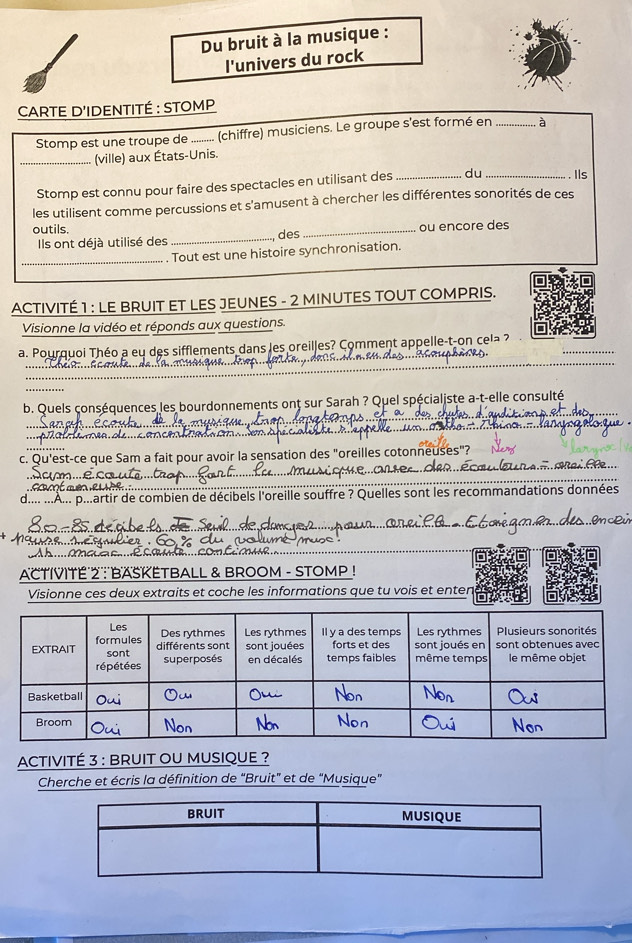 Du bruit à la musique :
l'univers du rock
CARTE D'IDENTITÉ : STOMP
Stomp est une troupe de ........ (chiffre) musiciens. Le groupe s'est formé en ............. à
...................... (ville) aux États-Unis.
Stomp est connu pour faire des spectacles en utilisant des .................... du ........................ . Ils
les utilisent comme percussions et s'amusent à chercher les différentes sonorités de ces
outils.
Ils ont déjà utilisé des ..............................., des ................................... ou encore des
........................................... . Tout est une histoire synchronisation.
ACTIVITÉ 1 : LE BRUIT ET LES JEUNES - 2 MINUTES TOUT COMPRIS.
Visionne la vidéo et réponds aux questions.
a. Pourquoi Théo a eu des sifflements dans les oreilles? Comment appelle-t-on cela ?
Théo écoute de la musique trop forte, donc il a eu des acouphènes.
b. Quels conséquences les bourdonnements ont sur Sarah ? Quel spécialiste a-t-elle consulté
Sarah écoute de la musique trop longtemps et a des chutes d'auditions et des
problèmes de concentration. Son spécialiste s'appelle un otho - rhino - laryngologue.
oreille
c. Qu'est-ce que Sam a fait pour avoir la sensation des "oreilles cotonneuses"?
Nez
larynx
Sam écoute trop fort la musique avec des écouteurs = oreille
contoneuse.
d... ...À... p...artir de combien de décibels l'oreille souffre ? Quelles sont les recommandations données
80-85 décibels Seuil de danger pour oreille. Eloigner des encein
+ pause régulier. 60% du volume max!
écoute continue
ACTIVITÉ 2 : BASKETBALL & BROOM - STOMP !
Visionne ces deux extraits et coche les informations que tu vois et enten
EXTRAIT
Les formules sont répétées
Des rythmes différents sont superposés
Les rythmes sont jouées en décalés
Il y a des temps forts et des temps faibles
Les rythmes sont joués en même temps
Plusieurs sonorités sont obtenues avec le même objet
Basketball Oui Oui Oui Non Non Oui
Broom Oui Non Non Non Oui Non
ACTIVITÉ 3 : BRUIT OU MUSIQUE ?
Cherche et écris la définition de "Bruit" et de "Musique"
BRUIT MUSIQUE